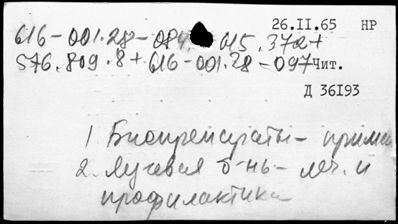 26.II.65 НР
616-001.28-084. 615.372+
576.809.8+616-001.28-097 Чит.
Д 36193
1 Биопрепараты - приме
2. Лучевая б-нь - леч. и
профилактика